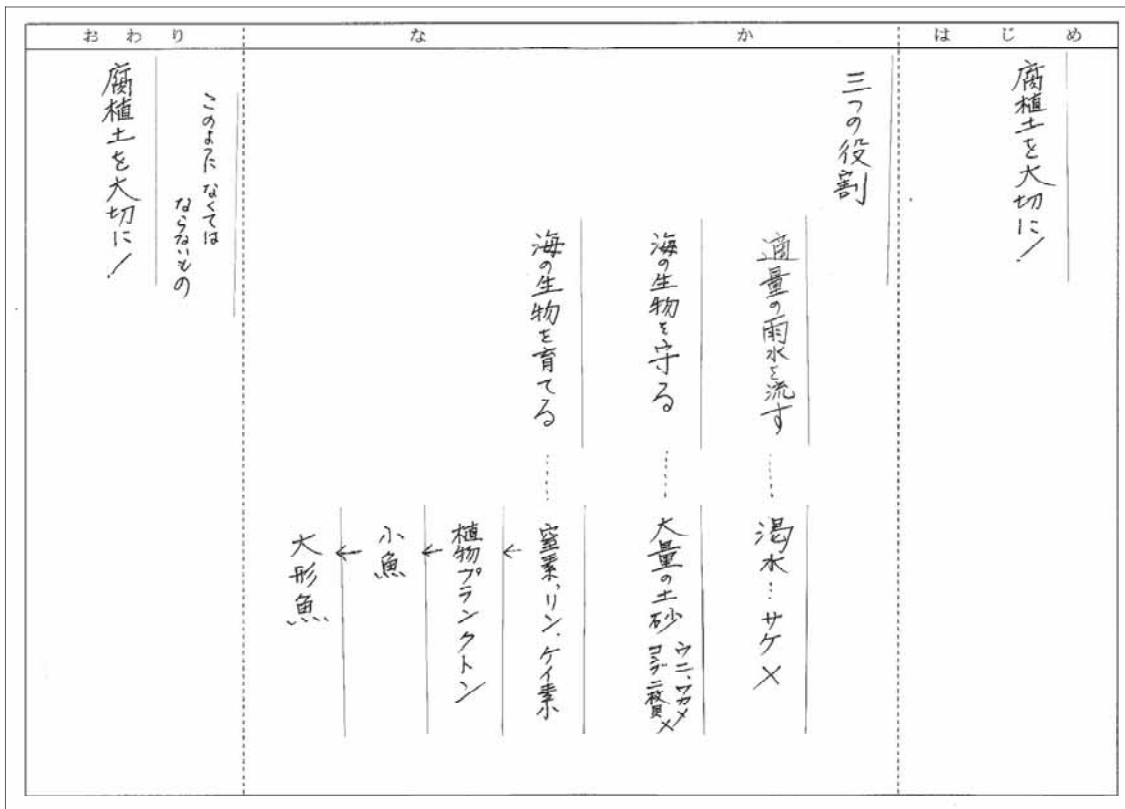 はじめ
なか
おわり
腐植土を大切に！
三つの役割
適量の雨水を流す
……
渇水…サケ×
海の生物を守る
……
大量の土砂
ウニ、ワカメ
コンブ二枚貝×
海の生物を育てる
……
窒素、リン、ケイ素
←
植物プランクトン
←
小魚
←
大形魚
このようになくては
ならないもの
腐植土を大切に！